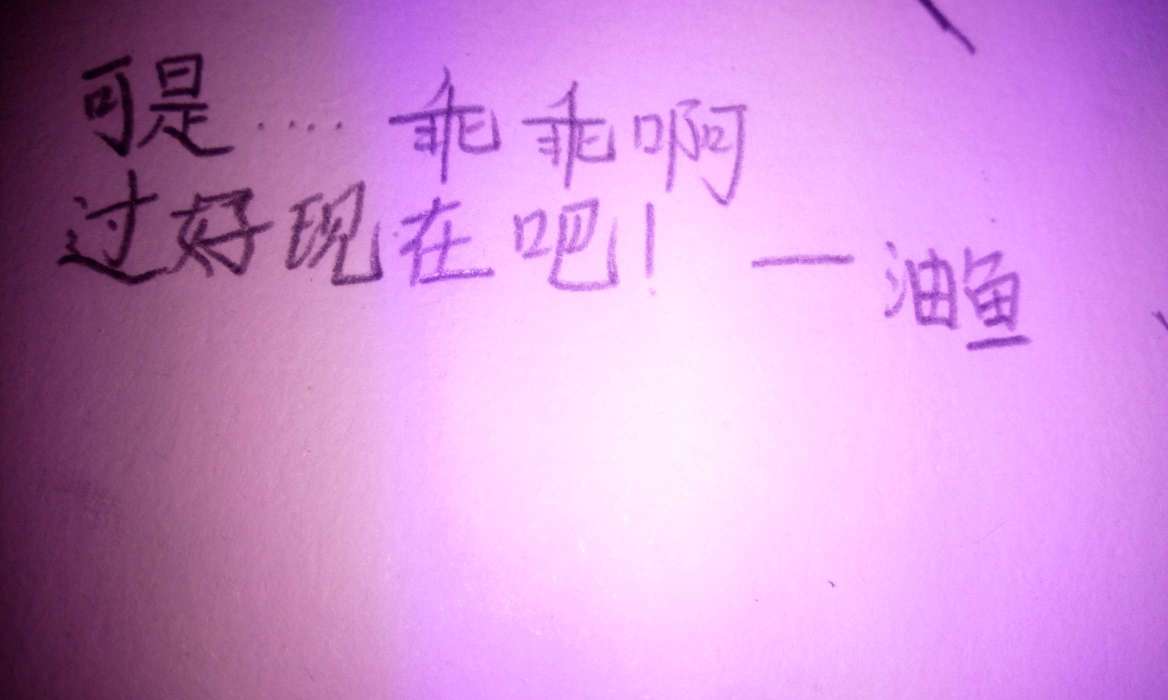 可是····乖乖啊
过好现在吧！ —油鱼